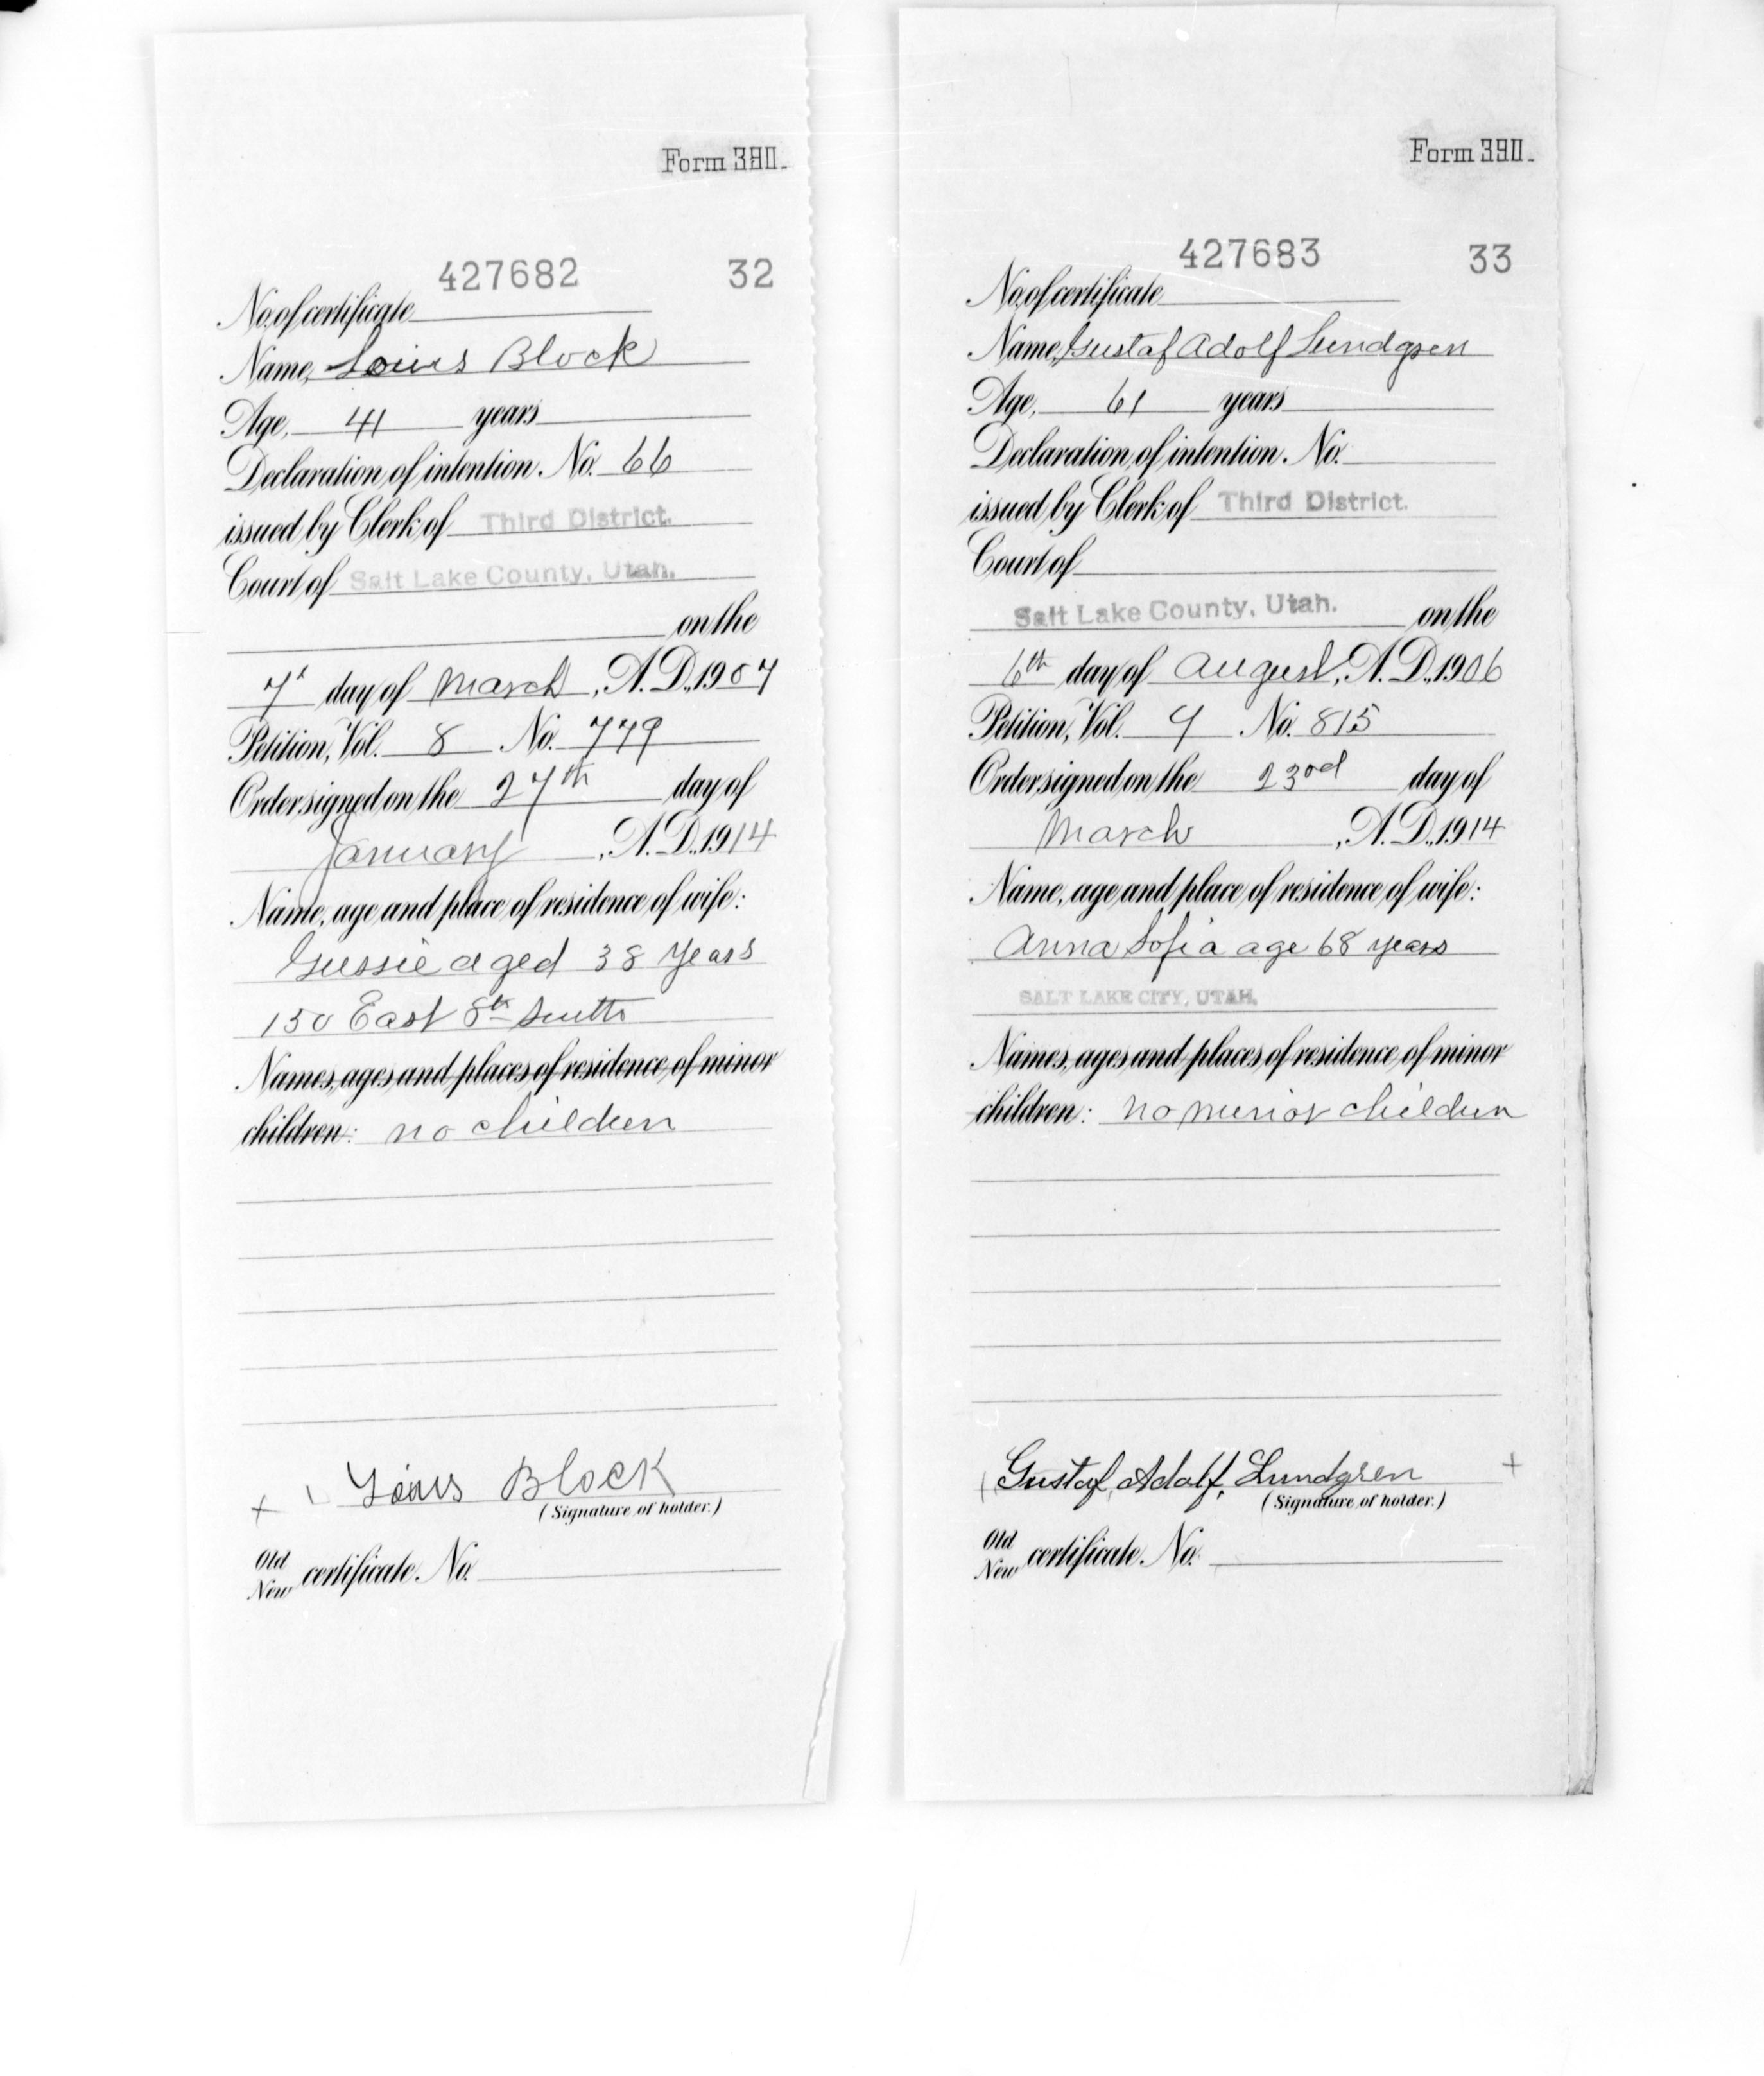 Form 390.
427682 32
No. of certificate
Name, Louis Block
Age, 41 years
Declaration of intention. No. 66
issued by Clerk of Third District.
Court of Salt Lake County, Utah.
on the
7" day of March, A.D., 1907
Petition, Vol. 8 No. 779
Order signed on the 27th day of
January, A.D. 1914
Name, age and place of residence of wife:
Gussie aged 38 years
150 East 8th South
Names, ages and places of residence of minor
children: no children
Louis Block
(Signature of holder.)
Old
New certificate. No.
Form 390.
427683 33
No. of certificate
Name, Gustaf Adolf Lundgren
Age, 61 years
Declaration of intention. No.
issued by Clerk of Third District.
Court of
Salt Lake County, Utah. on the
6th day of August, A.D., 1906
Petition, Vol. 9 No. 815
Order signed on the 23rd day of
March, A.D., 1914
Name, age and place of residence of wife:
Anna Sofia age 68 years
SALT LAKE CITY, UTAH.
Names, ages and places of residence of minor
children: no minor children
Gustaf Adolf Lundgren
(Signature of holder.)
Old
New certificate. No.